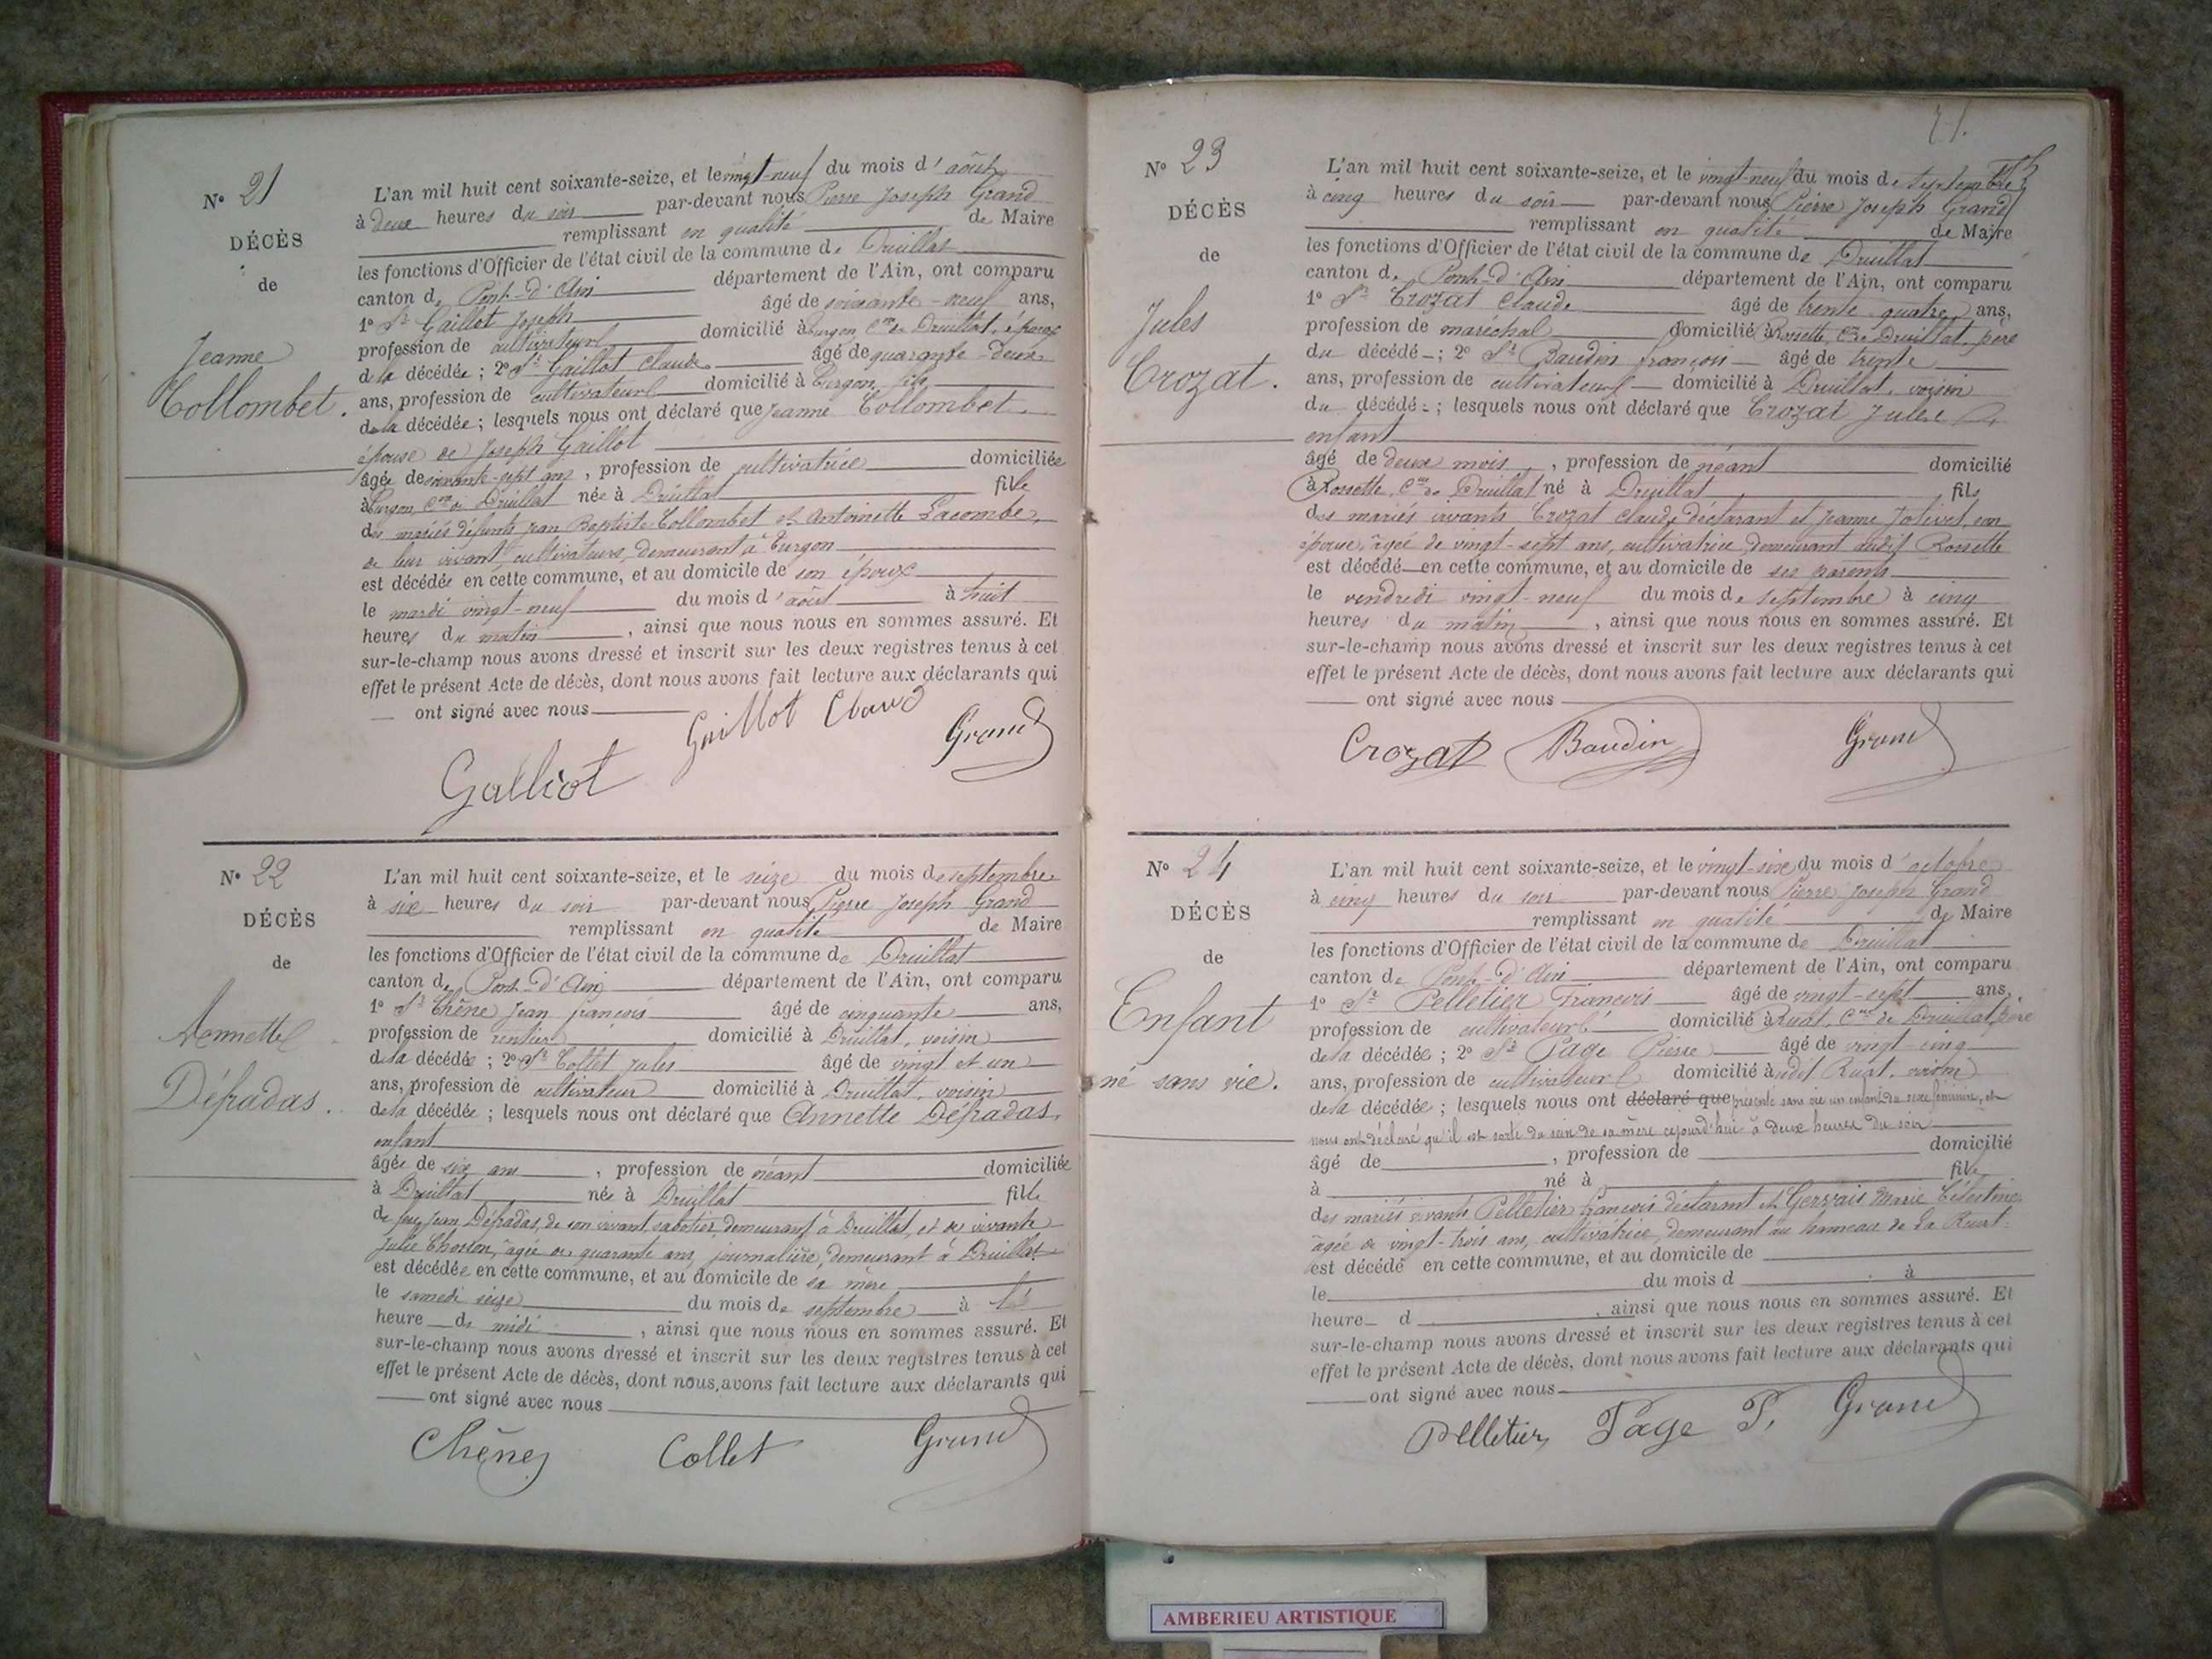 N° 21
DÉCÈS
de
Jeanne
Collombet.
L'an mil huit cent soixante-seize, et le vingt-neuf du mois d'août
à deux heures du soir par-devant nous Pierre Joseph Grand
remplissant en qualité de Maire
les fonctions d'Officier de l'état civil de la commune de Druillat
canton de Pont-d'Ain département de l'Ain, ont comparu
1° Sr Gaillot Joseph âgé de soixante-neuf ans,
profession de cultivateur domicilié à Turgon Cne de Druillat, époux
de la décédée ; 2° Sr Gaillot Claude âgé de quarante-deux
ans, profession de cultivateur domicilié à Turgon, fils
de la décédée ; lesquels nous ont déclaré que Jeanne Collombet,
épouse de Joseph Gaillot
âgée de soixante-sept ans, profession de cultivatrice domiciliée
à Turgon, Cne de Druillat née à Druillat fille
des mariés défunts Jean Baptiste Collombet et Antoinette Lacombe,
de leur vivant cultivateurs, demeurant à Turgon
est décédée en cette commune, et au domicile de son époux
le mardi vingt-neuf du mois d'août à huit
heures du matin, ainsi que nous nous en sommes assuré. Et
sur-le-champ nous avons dressé et inscrit sur les deux registres tenus à cet
effet le présent Acte de décès, dont nous avons fait lecture aux déclarants qui
ont signé avec nous
Galliot Gaillot Claud Grand
N° 22
DÉCÈS
de
Annette
Défradas.
L'an mil huit cent soixante-seize, et le seize du mois de septembre
à six heures du soir par-devant nous Pierre Joseph Grand
remplissant en qualité de Maire
les fonctions d'Officier de l'état civil de la commune de Druillat
canton de Pont-d'Ain département de l'Ain, ont comparu
1° Sr Chêne Jean françois âgé de cinquante ans,
profession de rentier domicilié à Druillat, voisin
de la décédée ; 2° Sr Collet Jules âgé de vingt et un
ans, profession de cultivateur domicilié à Druillat, voisin
de la décédée ; lesquels nous ont déclaré que Annette Défradas,
enfant
âgée de six ans, profession de néant domiciliée
à Druillat née à Druillat fille
de feu Jean Défradas, de son vivant sabotier, demeurant à Druillat, et de vivante
Julie, âgée de quarante ans, journalière, demeurant à Druillat
est décédée en cette commune, et au domicile de sa mère
le samedi seize du mois de septembre à
heure de midi, ainsi que nous nous en sommes assuré. Et
sur-le-champ nous avons dressé et inscrit sur les deux registres tenus à cet
effet le présent Acte de décès, dont nous avons fait lecture aux déclarants qui
ont signé avec nous
Chêne Collet Grand
71.
N° 23
DÉCÈS
de
Jules
Crozat.
L'an mil huit cent soixante-seize, et le vingt-neuf du mois de septembre
à cinq heures du soir par-devant nous Pierre Joseph Grand
remplissant en qualité de Maire
les fonctions d'Officier de l'état civil de la commune de Druillat
canton de Pont-d'Ain département de l'Ain, ont comparu
1° Sr Crozat Claude âgé de trente quatre ans,
profession de maréchal domicilié à Rossette, Cne de Druillat, père
du décédé ; 2° Sr Baudin françois âgé de trente
ans, profession de cultivateur domicilié à Druillat, voisin
du décédé ; lesquels nous ont déclaré que Crozat Jules
enfant
âgé de deux mois, profession de néant domicilié
à Rossette, Cne de Druillat né à Druillat fils
des mariés vivants Crozat Claude, déclarant et Jeanne Jolivet, son
épouse, âgée de vingt-sept ans, cultivatrice, demeurant audit Rossette
est décédé en cette commune, et au domicile de ses parents
le vendredi vingt-neuf du mois de septembre à cinq
heures du matin, ainsi que nous nous en sommes assuré. Et
sur-le-champ nous avons dressé et inscrit sur les deux registres tenus à cet
effet le présent Acte de décès, dont nous avons fait lecture aux déclarants qui
ont signé avec nous
Crozat Baudin Grand
N° 24
DÉCÈS
de
Enfant
né sans vie.
L'an mil huit cent soixante-seize, et le vingt-six du mois d'octobre
à cinq heures du soir par-devant nous Pierre Joseph Grand
remplissant en qualité de Maire
les fonctions d'Officier de l'état civil de la commune de Druillat
canton de Pont-d'Ain département de l'Ain, ont comparu
1° Sr Pelletier François âgé de vingt-sept ans,
profession de cultivateur domicilié à Ruat, Cne de Druillat, père
de la décédée ; 2° Sr Page Pierre âgé de vingt-cinq
ans, profession de cultivateur domicilié audit Ruat, voisin
de la décédée ; lesquels nous ont déclaré que présenté sans vie un enfant du sexe féminin, et
nous ont déclaré qu'il est sorti du sein de sa mère cejourd'hui à deux heures du soir
âgé de, profession de domicilié
à né à fille
des mariés vivants Pelletier François déclarant et Gervais Marie Célestine,
âgée de vingt-trois ans, cultivatrice, demeurant au hameau de La Ruat.
est décédé en cette commune, et au domicile de
le du mois d à
heure d, ainsi que nous nous en sommes assuré. Et
sur-le-champ nous avons dressé et inscrit sur les deux registres tenus à cet
effet le présent Acte de décès, dont nous avons fait lecture aux déclarants qui
ont signé avec nous
Pelletier Page P. Grand
AMBERIEU ARTISTIQUE